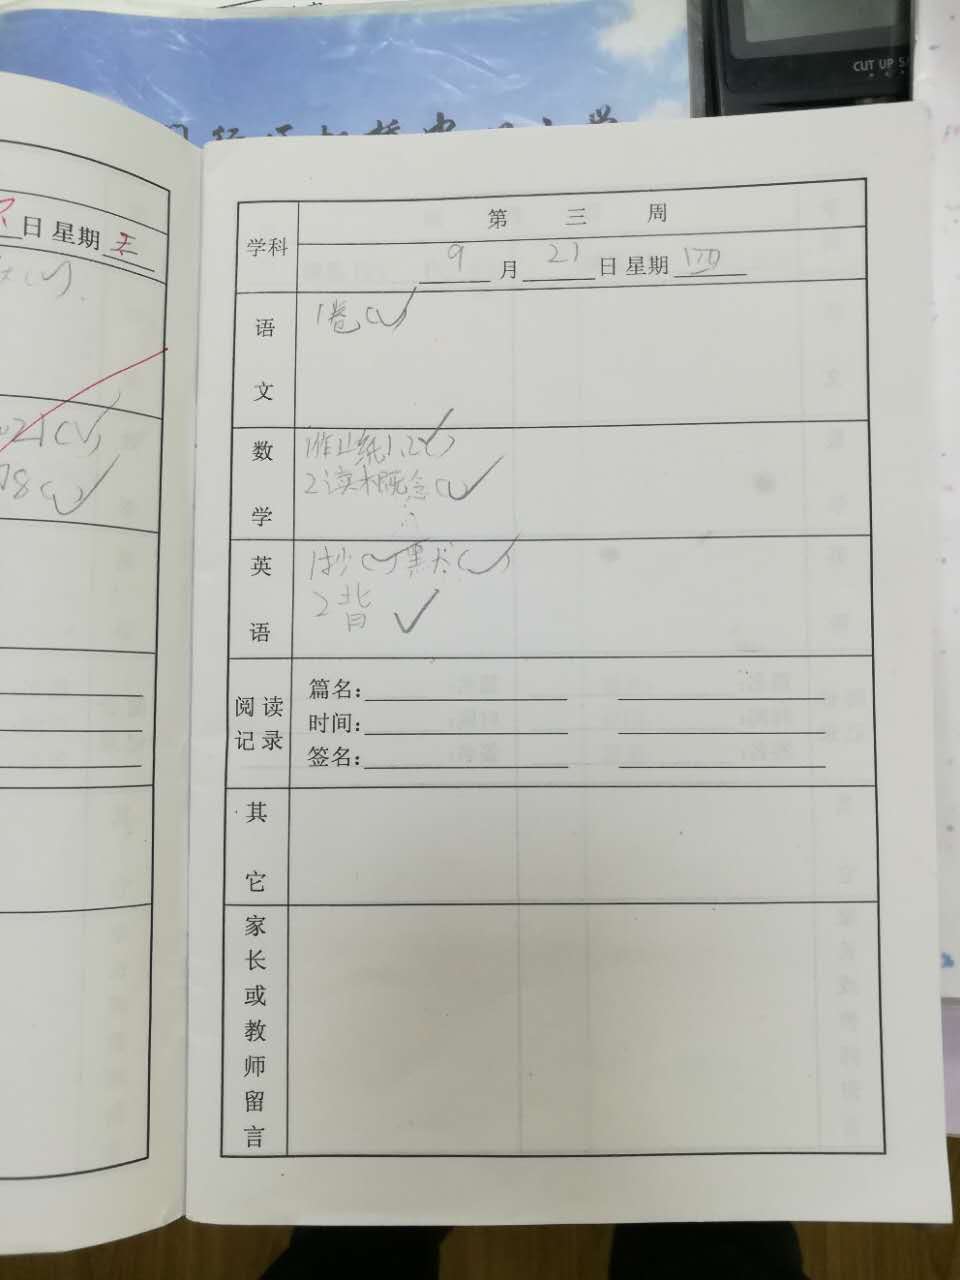 CUT UP
日 星期 五
21(✓)
78(✓)
第 三 周
学科
9 月 21 日 星期 四
语文
1卷(✓)
数学
1作业纸1、2(✓)
2读本概念(✓)
英语
1抄(✓)默(✓)
2背 ✓
阅读记录
篇名:
时间:
签名:
其它
家长或教师留言